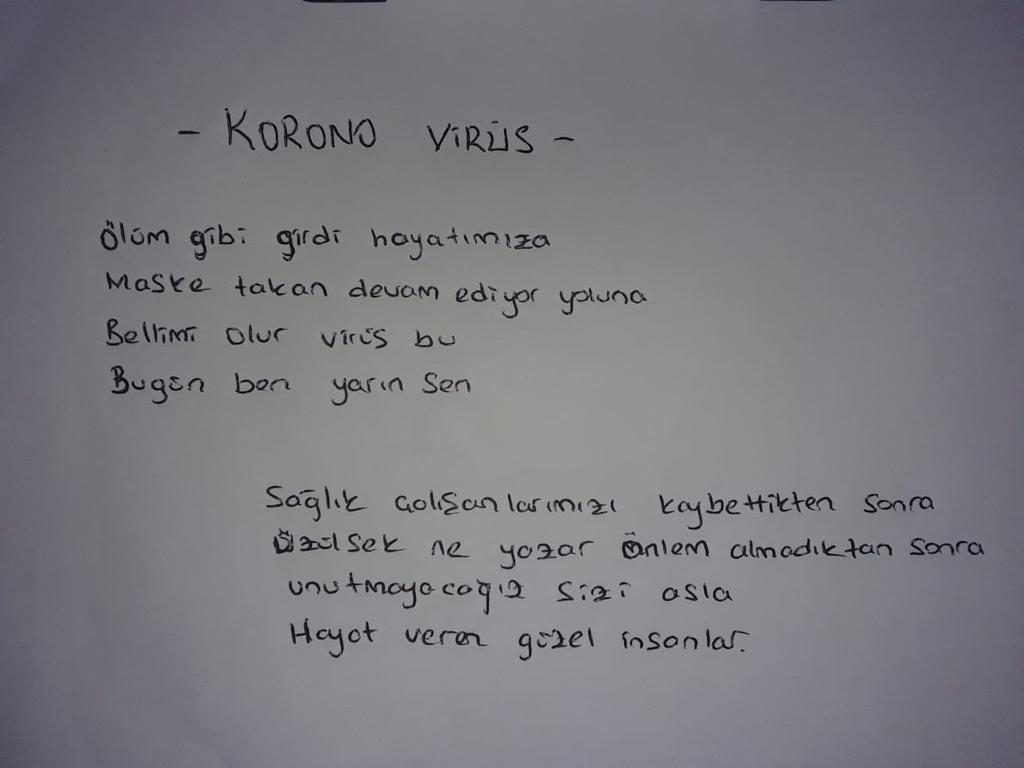 - KORONO VİRÜS -
Ölüm gibi girdi hayatımıza
Maske takan devam ediyor yoluna
Bellimi olur virüs bu
Bugün ben yarın sen
Sağlık çalışanlarımızı kaybettikten sonra
Üzülsek ne yazar önlem almadıktan sonra
unutmayacağız sizi asla
Hayat veren güzel insanlar.